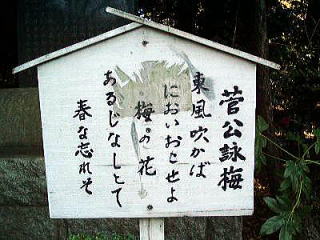 菅公詠梅
東風吹かば
においおこせよ
梅の花
あるじなしとて
春な忘れそ